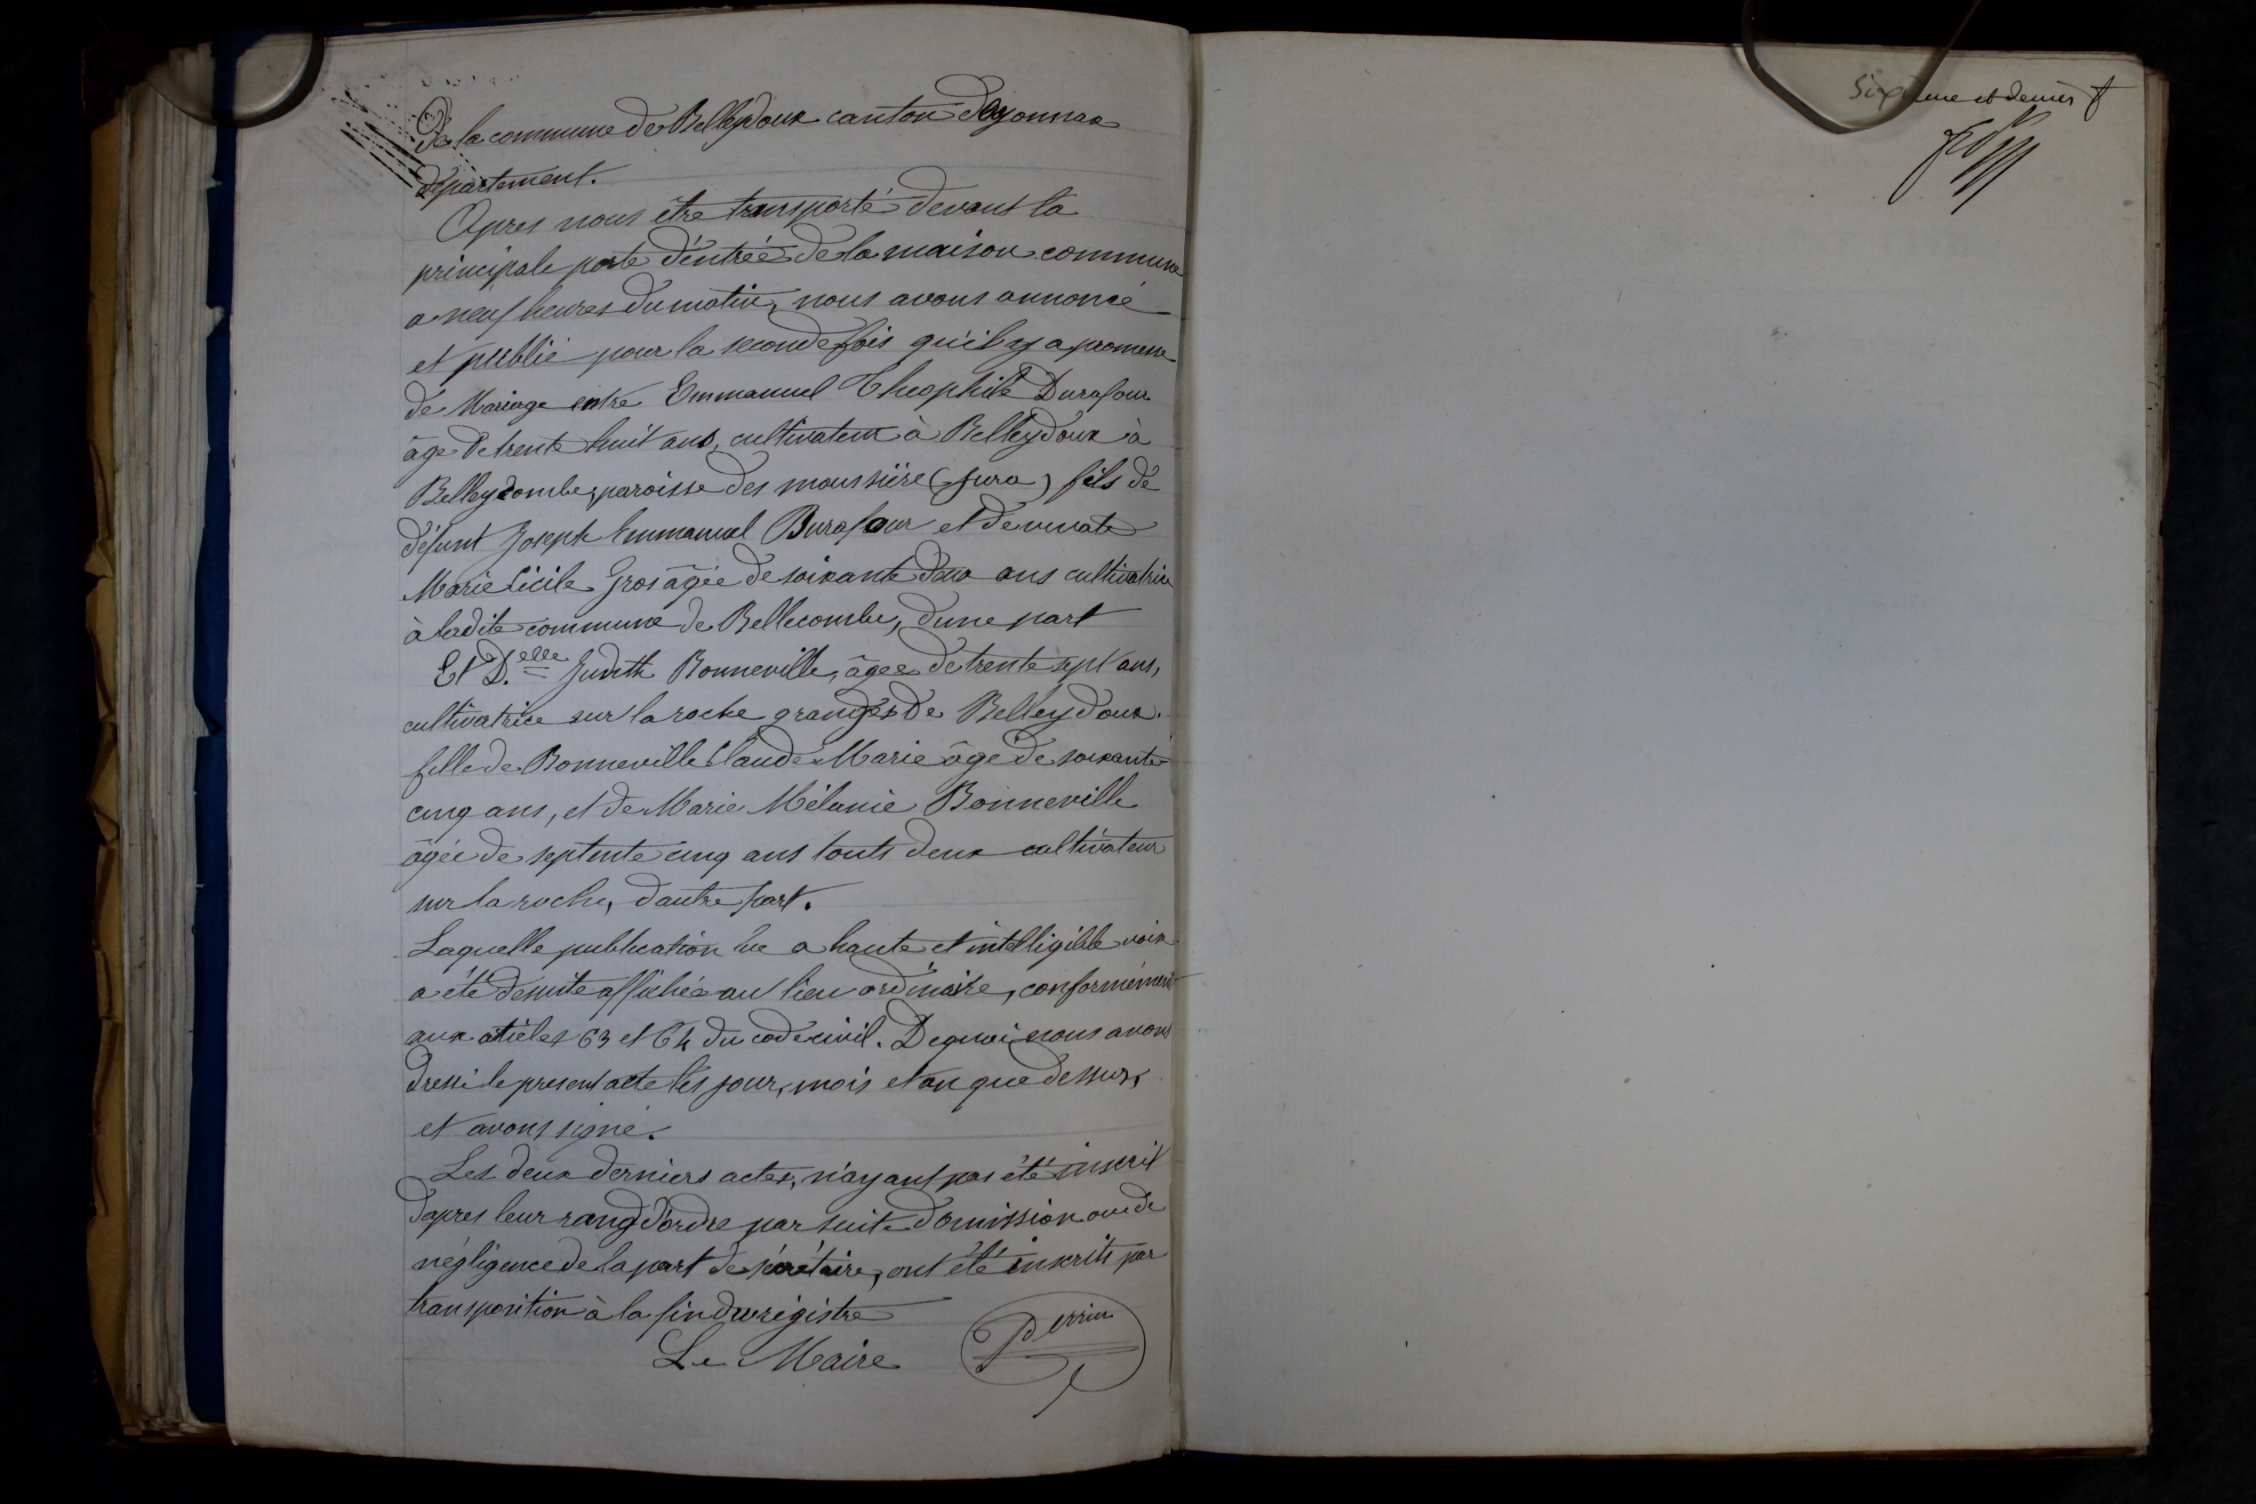 De la commune de Belleydoux canton d'oyonnax
département.
Apres nous être transporté devant la
principale porte d'éntréé de la maison commune
a neuf heures du matin, nous avons annoncé
et publié pour la seconde fois qu'il y a promesse
de Mariage entre Emmanuel Théophile Durafour
âge de trente huit ans, cultivateur à Belleydoux à
Belleycombe, paroisse des moussière (Jura) fils de
défunt Joseph Emmanuel Durafour et de
Marie Cécile Gros âgée de soixante deux ans cultivatrice
à ladite commune de Bellecombe, dune part
Et D.elle Judith Bonneville, âgée de trente sept ans,
cultivatrice sur la roche granges de Belleydoux.
fille de Bonneville Claude Marie âgé de soixante
cinq ans, et de Marie Mélanie Bonneville
âgée de septente cinq ans touts deux cultivateur
sur la roche, dautre part.
Laquelle publication lue a haute et intelligible voix
a été desuite affichée au lieu ordinaire, conformément
aux aticles 63 et 64 du code civil. De quoi nous avons
dressé le present acte les jour, mois et an que dessus,
et avons signé.
Les deux derniers actes, n'ayant pas été inscrit
dapres leur rang d'ordre par suite d'omission ou de
négligence de la part de sécrétaire, ont été inscrits par
transposition à la fin du régistre
Le Maire Perrin
Sixième et dernier f